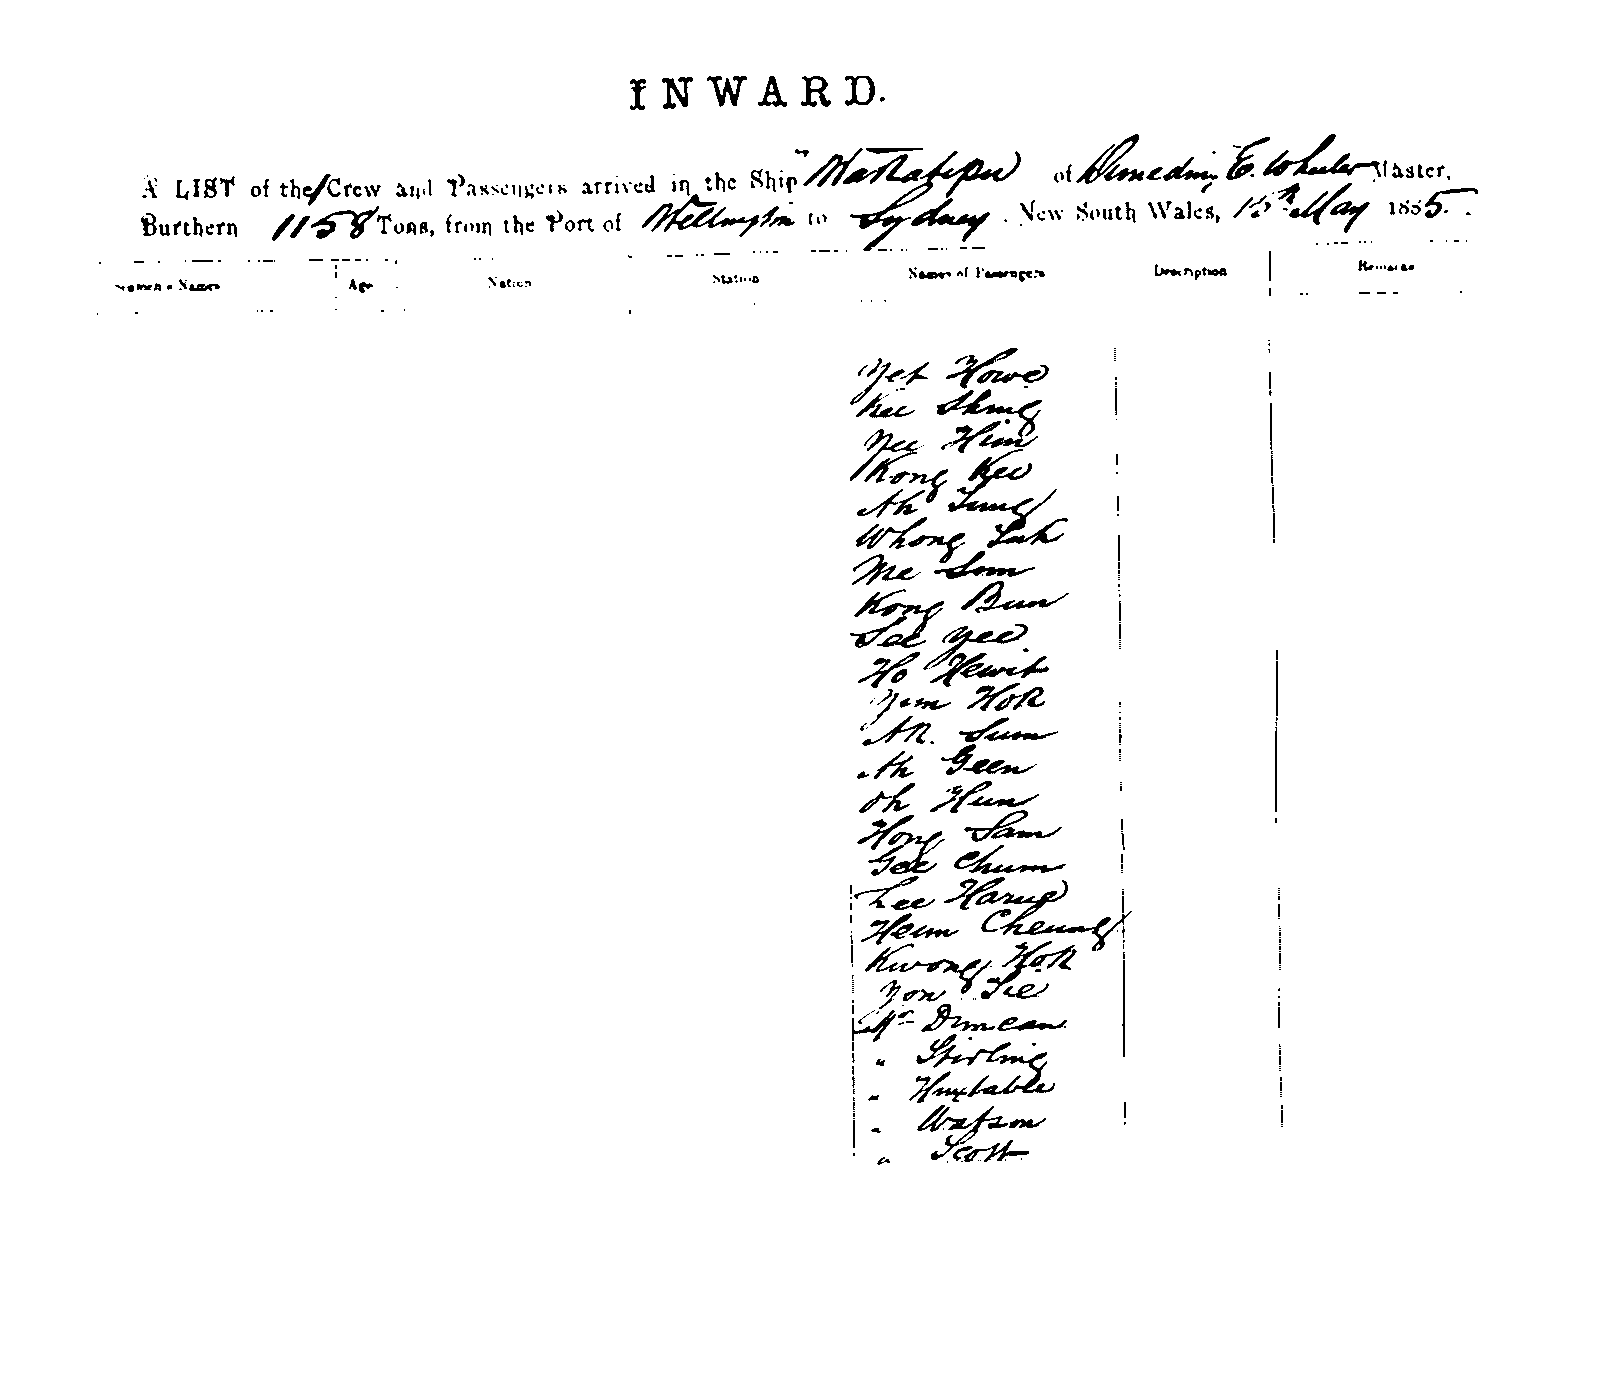 INWARD.
A LIST of the Crew and Passengers arrived in the Ship "Wakatipu of Dunedin, E. Wheeler Master,
Burthern 1158 Tons, from the Port of Wellington to Sydney. New South Wales, 15th May 1885.
Names Age Nation Station Names of Passengers Description Remarks
Yet Howe
Kee Shing
Yee Him
Kong Kee
Ah
Whong
Me Sum
Kong Bun
See Yee
Ho Hewit
Yum Hok
Ak. Sum
Ah Geen
Oh Hun
Hong Sam
Gee Chum
Lee
Heum Cheung
Kwong Hok
Yon
Mr Duncan
" Stirling
" Huxtable
" Watson
" Scott